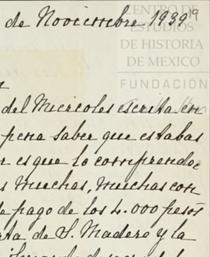 CENTRO DE
ESTUDIOS
DE HISTORIA
DE MEXICO
FUNDACIÓN
de Noviembre 1939
del Miércoles escrita en
pena saber que estabas
es que lo comprendo
muchas, muchas con
pago de los 4.000 pesos
de S. Madero y la